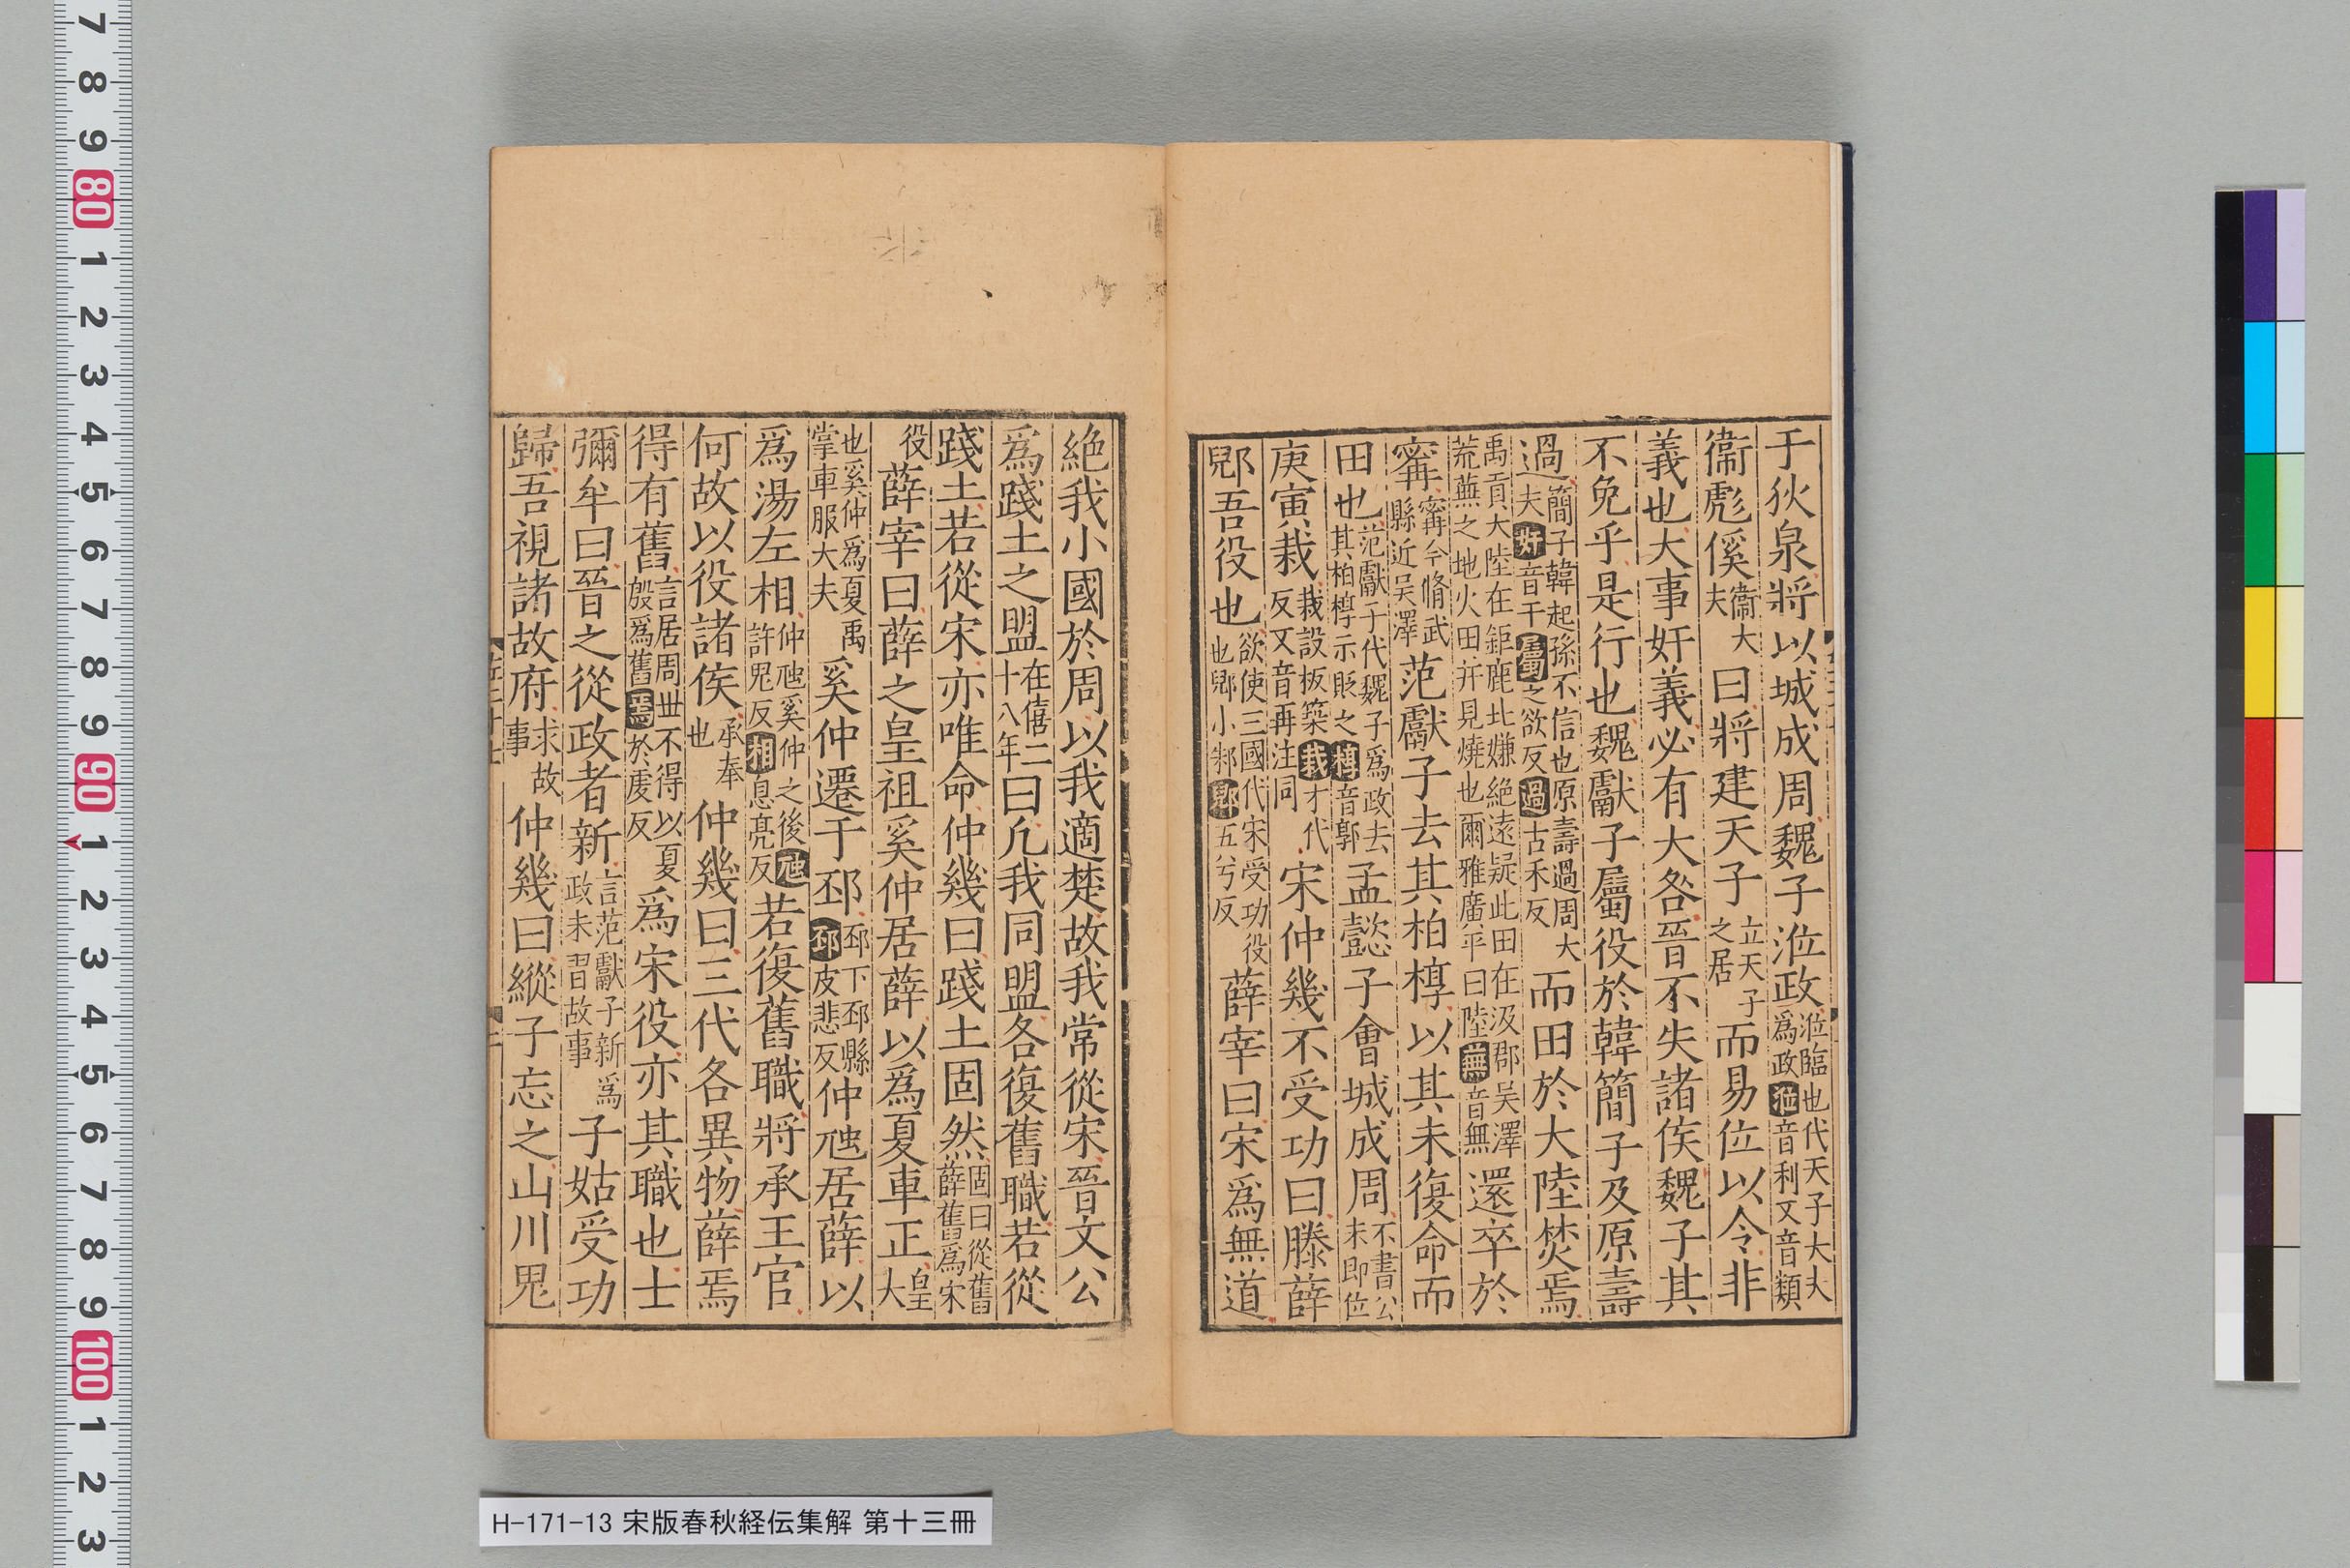 于狄泉將以城成周魏子涖政涖臨也代天子大夫爲政涖音利又音類
衞彪傒衞大夫曰將建天子立天子之居而易位以令非
義也大事奸義必有大咎晉不失諸侯魏子其
不免乎是行也魏獻子屬役於韓簡子及原壽
過簡子韓起孫不信也原壽過周大夫奸音干屬之欲反過古禾反而田於大陸焚焉
禹貢大陸在鉅鹿北嫌絶遠疑此田在汲郡吴澤荒蕪之地火田并見燒也爾雅廣平曰陸蕪音無還卒於
甯甯今脩武縣近吴澤范獻子去其柏椁以其未復命而
田也范獻子代魏子爲政去其柏椁示貶之椁音郭孟懿子會城成周不書公未即位
庚寅栽栽設板築栽才代反又音再注同宋仲幾不受功曰滕薛
郳吾役也欲使三國代宋受功役也郳小邾郳五兮反薛宰曰宋爲無道
絶我小國於周以我適楚故我常從宋晉文公
爲踐土之盟在僖二十八年曰凡我同盟各復舊職若從
踐土若從宋亦唯命仲幾曰踐土固然固曰從舊薛舊爲宋
役薛宰曰薛之皇祖奚仲居薛以爲夏車正皇大
也奚仲爲夏禹掌車服大夫奚仲遷于邳邳下邳縣邳皮悲反仲虺居薛以
爲湯左相仲虺奚仲之後虺許鬼反相息亮反若復舊職將承王官
何故以役諸侯承奉也仲幾曰三代各異物薛焉
得有舊言居周世不得以夏殷爲舊焉於虔反爲宋役亦其職也士
彌牟曰晉之從政者新言范獻子新爲政未習故事子姑受功
歸吾視諸故府求故事仲幾曰縱子忘之山川鬼
H-171-13 宋版春秋経伝集解 第十三冊
7 8 9 80 1 2 3 4 5 6 7 8 9 90 1 2 3 4 5 6 7 8 9 100 1 2 3